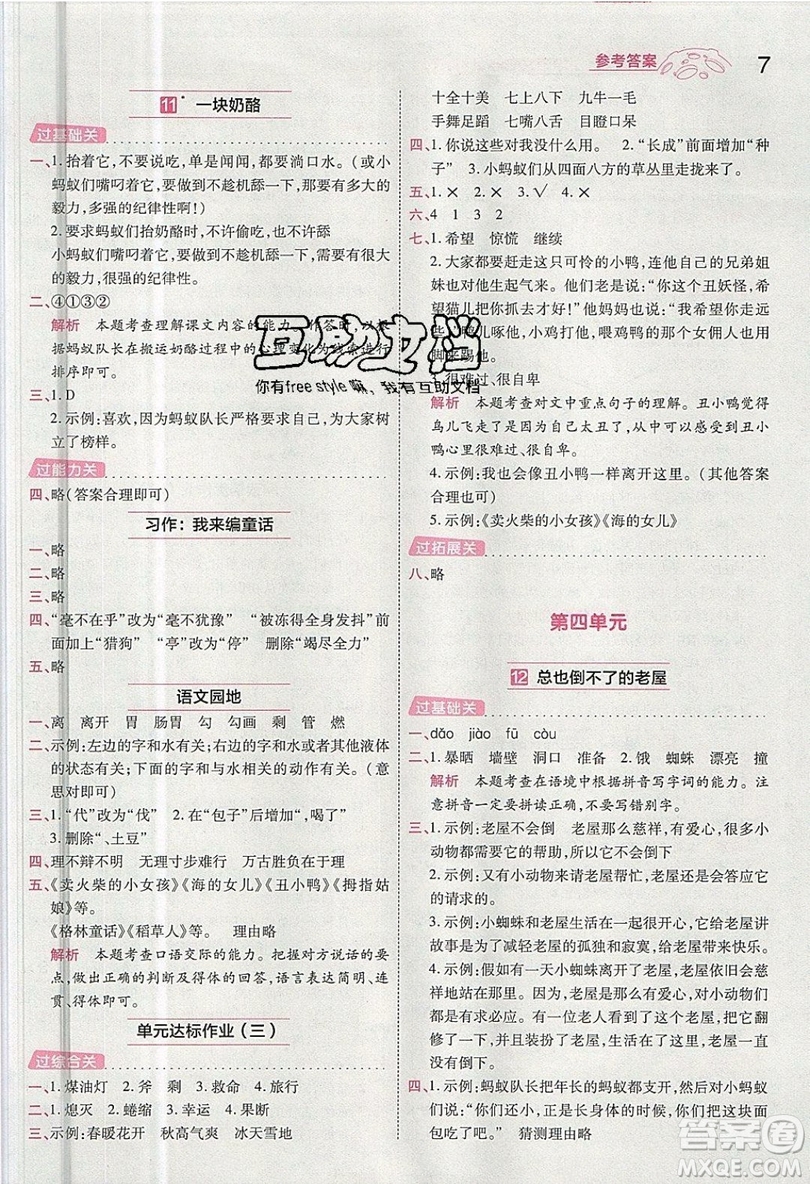 参考答案 7
11* 一块奶酪
过基础关
一、1. 抬着它,不要说吃,单是闻闻,都要淌口水。(或小
蚂蚁们嘴叼着它,要不趁机舔一下,那要有多大的
毅力,多强的纪律性啊!)
2. 要求蚂蚁们抬奶酪时,不许偷吃,也不许舔
小蚂蚁们嘴叼着它,要不趁机舔一下,要有很大的
毅力,很强的纪律性。
二、④①③②
解析 本题考查理解课文内容的能力。作答时,根
据蚂蚁队长在搬运奶酪过程中的心理变化为其进行
排序即可。
三、1. D
2. 示例:喜欢,因为蚂蚁队长严格要求自己,为大家树
立了榜样。
过能力关
四、略(答案合理即可)
习作:我来编童话
一、略
二、略
三、略
四、“毫不在乎”改为“毫不犹豫” “被冻得全身发抖”前
面加上“猎狗” “亭”改为“停” 删除“竭尽全力”
五、略
语文园地
一、离 离开 胃 肠胃 勾 勾画 剩 管 燃
二、示例:左边的字和水有关;右边的字和其他液体
的状态有关;下面的字与水相关的动作有关。(意
思对即可)
三、1. “代”改为“伐” 2. 在“包子”后增加“,喝了”
3. 删除“、土豆”
四、理不辩不明 无理寸步难行 万古胜负在理
五、《卖火柴的小女孩》《海的女儿》《丑小鸭》《拇指姑
娘》等。
《格林童话》《稻草人》等。 理由略
解析 本题考查口语交际的能力。要根据对方说话的内
容,做出正确的判断及得体的回答,语言表达简明、连
贯、得体即可。
单元达标作业(三)
过综合关
一、1. 煤油灯 2. 斧 剩 3. 救命 4. 旅行
二、1. 熄灭 2. 蜷缩 3. 幸运 4. 果断
三、示例:春暖花开 秋高气爽 冰天雪地
十全十美 七上八下 九牛一毛
手舞足蹈 七嘴八舌 目瞪口呆
四、1. 你说这些对我没什么用。 2. “长成”前面增加“种
子” 3. 小蚂蚁们从四面八方的草丛里走拢来了。
五、1. × 2. × 3. √ 4. ×
六、4 1 3 2
七、1. 希望 惊慌 继续
2. 大家都要赶走这只可怜的小鸭,连他的兄弟姐
妹也对他生气起来。他们老是说:“你这个丑妖怪,希
望猫儿把你抓去才好!”他妈妈也说:“我希望你走远
些!”鸭儿啄他,小鸡打他,喂鸡鸭的那个女佣人也
用脚来踢他。
3. 很难过、很自卑
解析 本题考查对文中重点句子的理解。丑小鸭觉得
鸟儿飞走了是因为自己太丑了,从中可以体会到丑小
鸭心里很难过、很自卑。
4. 示例:我也会像丑小鸭一样离开这里。(其他答案
合理也可)
5. 示例:《卖火柴的小女孩》《海的女儿》
过拓展关
八、略
第四单元
12 总也倒不了的老屋
过基础关
一、dǎo jiào fū còu
二、1. 暴晒 墙壁 洞口 准备 2. 饿 蜘蛛 漂亮 撞
解析 本题考查在语境中根据拼音写字词的能力。要
注意拼音一定要拼准确,不要写错别字。
三、1. 示例:老屋不会倒 老屋那么慈祥,有爱心,小
动物都需要它的帮助,所以它不会倒下
2. 示例:老屋很慈祥,善良,有爱心,它一定会答应它
的请求的。
3. 示例:小蜘蛛和老屋生活在一起很久了,它给老屋讲
故事是为了减轻老屋的孤独和寂寞,陪伴老屋。
4. 示例:假如有一天小蜘蛛离开了老屋,老屋一定
还会帮助很多的小动物。因为老屋是那么慈祥善
良,而且富有爱心,而那些小动物们,为了能和老屋
永远生活在一起,并且还能互相帮助,它们又翻修
了老屋,并装饰了整个老屋,让老屋变成了一个温
馨的家。
四、示例:蚂蚁队长把年长的蚂蚁都支开,然后对小蚂蚁
们说:“你们还小,正是长身体的时候,你们把这块面
包吃了吧。” 猜测理由略
互助文档
你有free style嘛,我有互助文档
答案圈
MXQE.COM